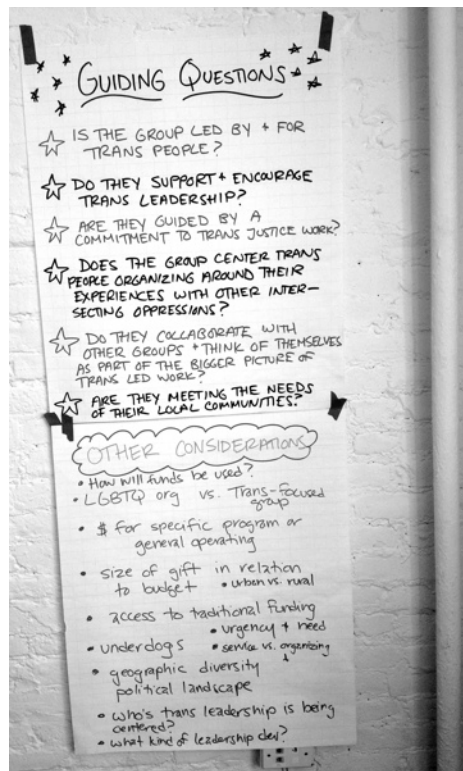 GUIDING QUESTIONS
IS THE GROUP LED BY + FOR
TRANS PEOPLE?
DO THEY SUPPORT + ENCOURAGE
TRANS LEADERSHIP?
ARE THEY GUIDED BY A
COMMITMENT TO TRANS JUSTICE WORK?
DOES THE GROUP CENTER TRANS
PEOPLE ORGANIZING AROUND THEIR
EXPERIENCES WITH OTHER INTER-
SECTING OPPRESSIONS?
DO THEY COLLABORATE WITH
OTHER GROUPS + THINK OF THEMSELVES
AS PART OF THE BIGGER PICTURE OF
TRANS LED WORK?
ARE THEY MEETING THE NEEDS
OF THEIR LOCAL COMMUNITIES?
OTHER CONSIDERATIONS
• How will funds be used?
• LGBTQ org vs. Trans-focused
group
• $ for specific program or
general operating
• size of gift in relation
to budget • urban vs. rural
• access to traditional funding
• urgency + need
• underdogs • service vs. organizing
• geographic diversity
political landscape
• who's trans leadership is being
centered?
• what kind of leadership dev.?